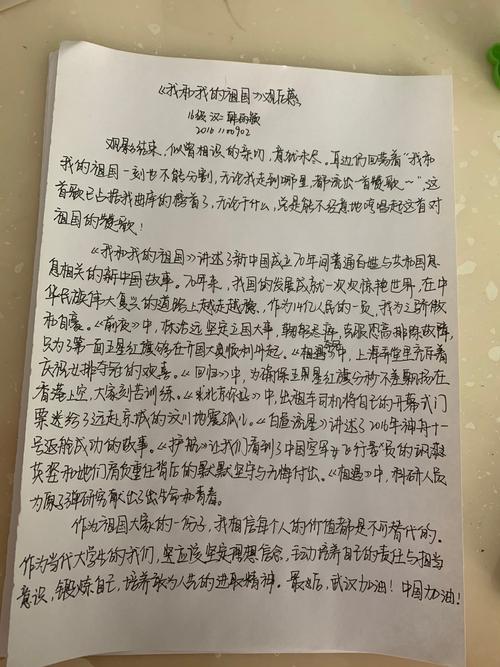 《我和我的祖国》观后感
16级 汉二 韩雨
20161100902
观影结束，似曾相识的亲切，意犹未尽。耳边仍回荡着“我和
我的祖国一刻也不能分割，无论我走到哪里，都流出一首赞歌~”，这
首歌已占据我曲库的榜首了，无论干什么，总是能不经意地哼唱起这首对
祖国的赞歌！
《我和我的祖国》讲述了新中国成立70年间普通百姓与共和国息
息相关的新中国故事。70年来，我国的发展成就一次次惊艳世界，在中
华民族伟大复兴的道路上越走越稳，作为14亿人民的一员，我为之骄傲
和自豪。《前夜》中，林治远坚定立国大事，克服困难排除故障，
只为了第一面五星红旗能够在开国大典顺利升起。《夺冠》中，上海弄堂里充斥着
庆祝女排夺冠的欢喜。《回归》中，为确保五星红旗分秒不差飘扬在
香港上空，大家刻苦训练。《北京你好》中，出租车司机将自己的开幕式门
票送给了远赴京城的汶川地震孤儿。《白昼流星》讲述了2016年神舟十一
号返航成功的故事。《护航》让我们看到了中国空军女飞行员的飒爽
英姿和她们肩负重任背后的默默坚守与无悔付出。《相遇》中，科研人员
为原子弹研究献出了生命和青春。
作为祖国大家的一份子，我相信每个人的价值都是不可替代的。
作为当代大学生的我们，更应该坚定理想信念，主动培养自己的责任与担当
意识，锻炼自己，培养敢为人先的进取精神。最后，武汉加油！中国加油！